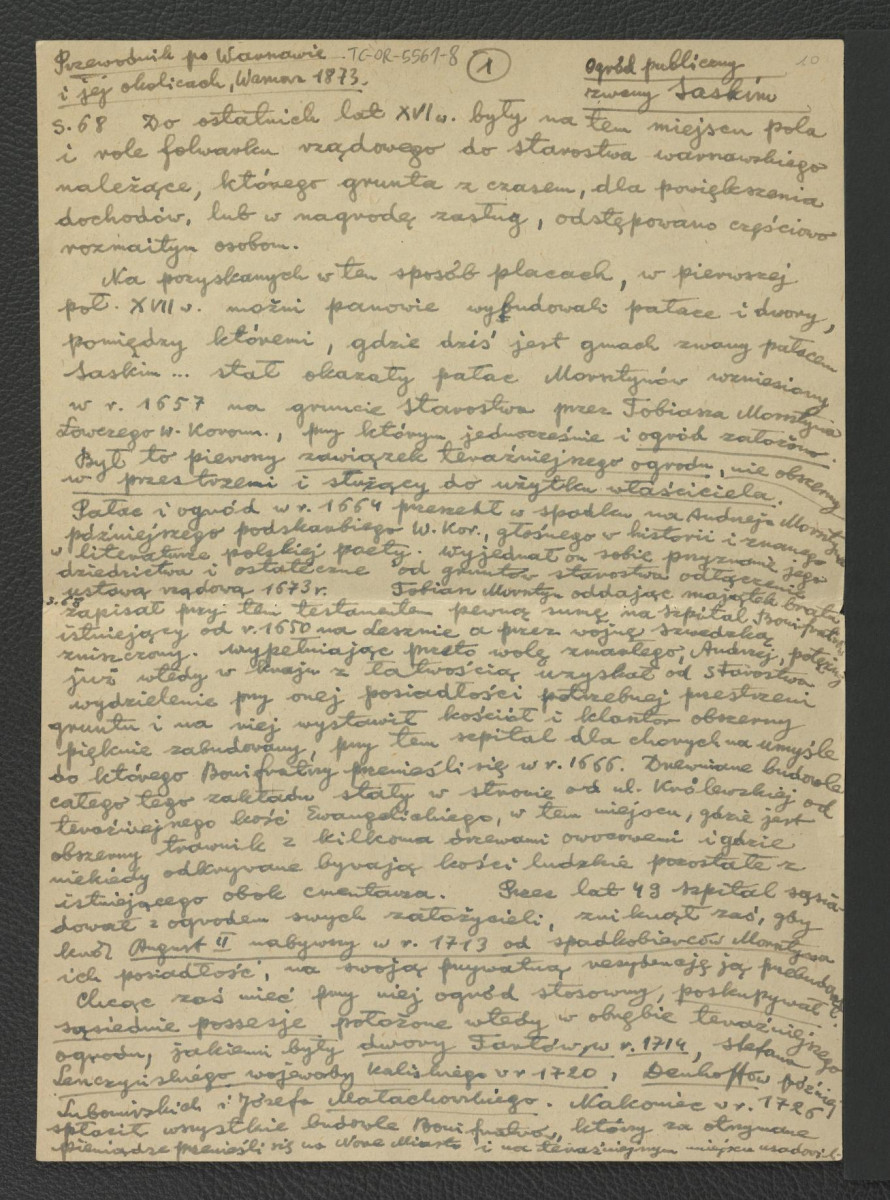 Przewodnik po Warszawie TG-OR-5561-8 1 Ogród publiczny 10
i jej okolicach, Warszawa 1873. zwany Saskim
S. 68 Do ostatnich lat XVI w. były na tem miejscu pola
i role folwarku rządowego do starostwa warszawskiego
należące, którego grunta z czasem, dla powiększenia
dochodów, lub w nagrodę zasług, odstępowano częściowo
rozmaitym osobom.
Na pozyskanych w ten sposób placach, w pierwszej
poł. XVII w. możni panowie wybudowali pałace i dwory,
pomiędzy któremi, gdzie dziś jest gmach zwany pałacem
Saskim... stał okazały pałac Morsztynów wzniesiony
w r. 1657 na gruncie starostwa przez Tobiasza Morsztyna
Łowczego W. Koronn., przy którym jednocześnie i ogród założono.
Był to pierwszy zawiązek teraźniejszego ogrodu, nie obszerny
w przestrzeni i służący do użytku właściciela.
Pałac i ogród w r. 1664 przeszedł w spadku na Andrzeja Morsztyna
późniejszego podskarbiego W. Kor., głośnego w historii i znanego
w literaturze polskiej poety. Wyjednał on sobie przyznanie jego
dziedzictwa i ostateczne od gruntów starostwa odłączenie
ustawą rządową 1673 r. Tobiasz Morsztyn oddając majątek bratu
s. 69 zapisał przy tem testamentem pewną sumę na szpital Bonifratrów
istniejący od r. 1650 na Lesznie a przez wojnę szwedzką
zniszczony. Wypełniając przeto wolę zmarłego, Andrzej, potężny
już wtedy w kraju z łatwością uzyskał od Starostwa
wydzielenie przy onej posiadłości potrzebnej przestrzeni
gruntu i na niej wystawił kościół i klasztor obszerny
pięknie zabudowany, przy tem szpital dla chorych na umyśle
do którego Bonifratrzy przenieśli się w r. 1666. Drewniane budowle
całego tego zakładu stały w stronie od ul. Królewskiej od
teraźniejszego kość. Ewangelickiego, w tem miejscu, gdzie jest
obszerny trawnik z kilkoma drzewami owocowemi i gdzie
niekiedy odkrywane bywają kości ludzkie pozostałe z
istniejącego obok cmentarza. Przez lat 49 szpital sąsia-
dował z ogrodem swych założycieli, zniknął zaś, gdy
król August II nabywszy w r. 1713 od spadkobierców Morsztyna
ich posiadłość, na swoją prywatną rezydencję ją przebudował.
Chcąc zaś mieć przy niej ogród stosowny, poskupywał
sąsiednie possesje położone wtedy w obrębie teraźniejszego
ogrodu, jakiemi były dwory Tarłów, w r. 1714, Stefana
Leszczyńskiego wojewody kaliskiego w r 1720, Denhoffów później
Lubomirskich i Józefa Małachowskiego. Nakoniec w r. 1726
spłacił wszystkie budowle Bonifratrów, którzy za otrzymane
pieniądze przenieśli się na Nowe Miasto i na teraźniejszym miejscu usadowili